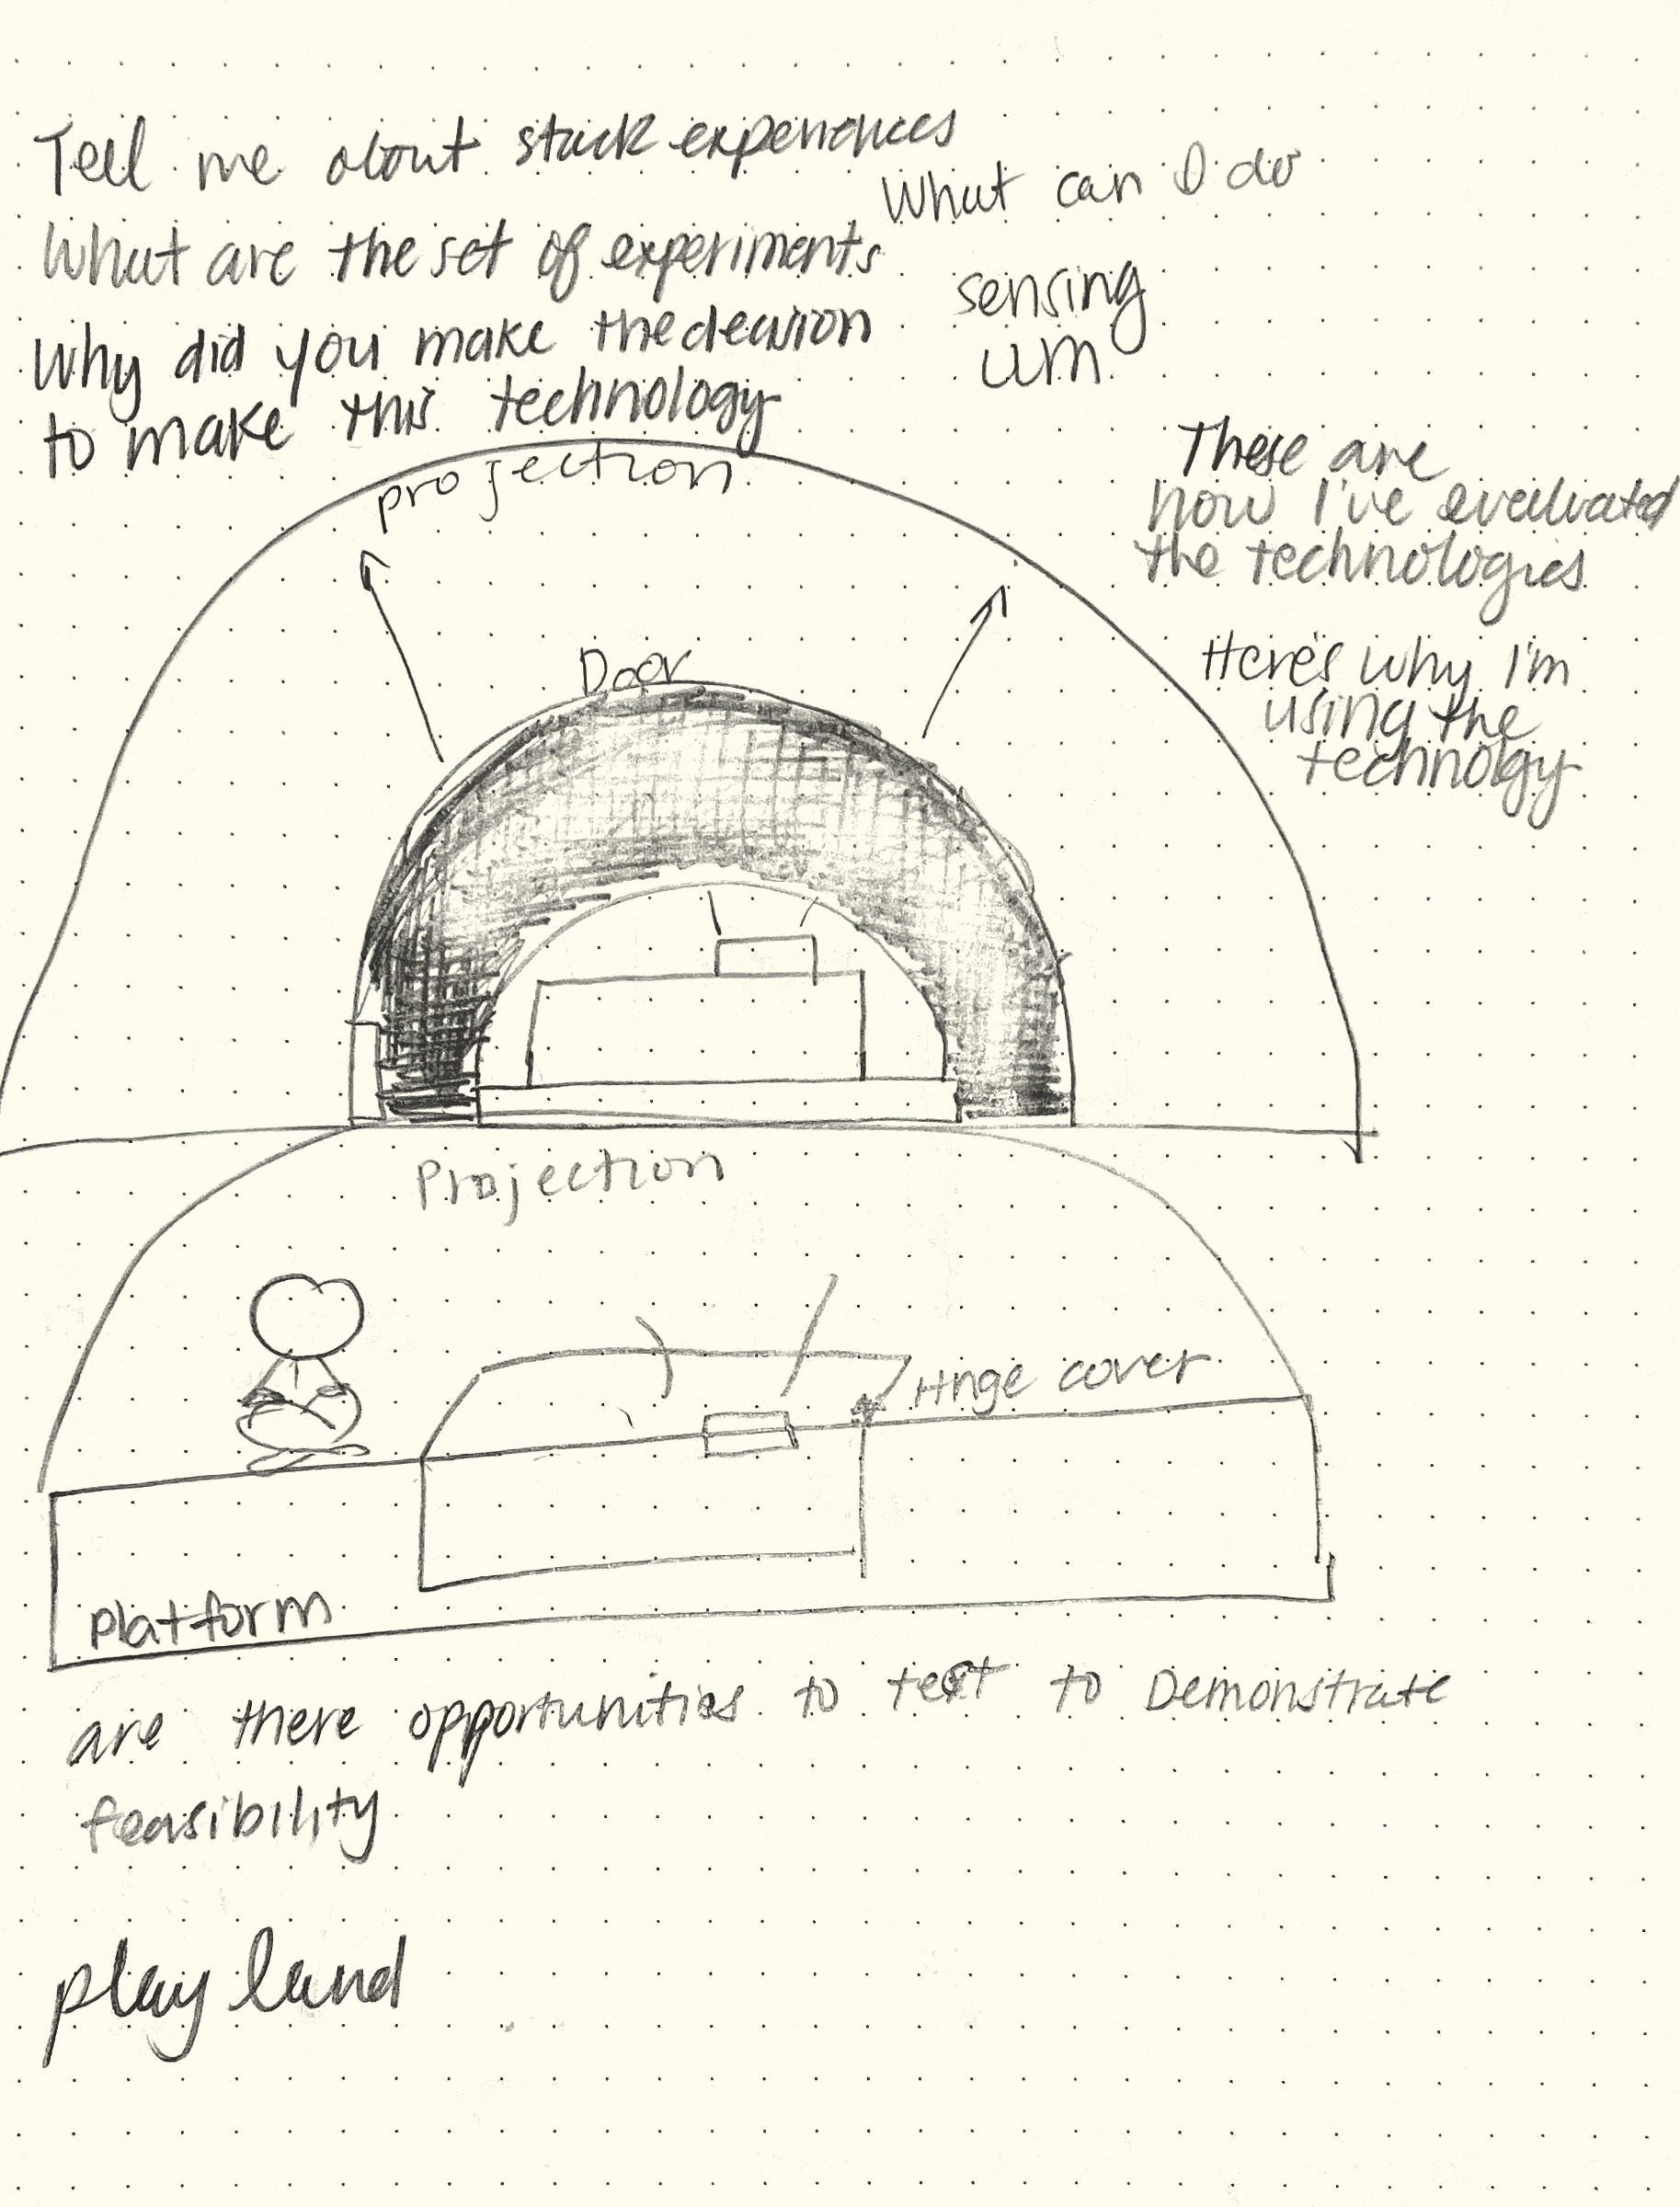 Tell me about stuck experiences
What can I do
What are the set of experiments
sensing
Why did you make the decision
to make this technology
projection
These are
how I've evaluated
the technologies
Door
Here's why I'm
using the
technology
Projection
Hinge cover
Platform
are there opportunities to test to Demonstrate
feasibility
play land